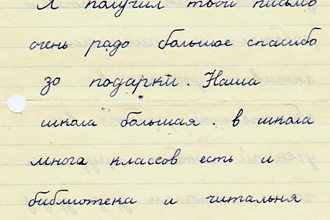 Я получил твой письмо
очень радо большое спасибо
зо подарки. Наша
школа большая. в школа
многа классов есть и
библиотена и читальня